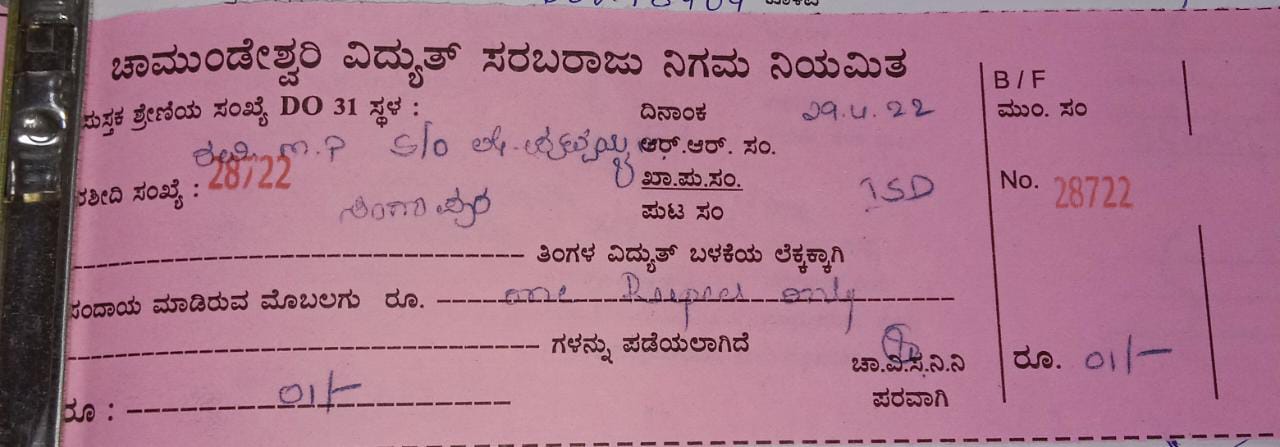 ಚಾಮುಂಡೇಶ್ವರಿ ವಿದ್ಯುತ್ ಸರಬರಾಜು ನಿಗಮ ನಿಯಮಿತ
ಪುಸ್ತಕ ಶ್ರೇಣಿಯ ಸಂಖ್ಯೆ DO 31 ಸ್ಥಳ :
ದಿನಾಂಕ 29.4.22
B / F
ಮುಂ. ಸಂ
M.P S/o
ಆರ್.ಆರ್. ಸಂ.
ರಶೀದಿ ಸಂಖ್ಯೆ : 28722
ಖಾ.ಪು.ಸಂ. ISD
No. 28722
ಪುಟ ಸಂ
ತಿಂಗಳ ವಿದ್ಯುತ್ ಬಳಕೆಯ ಲೆಕ್ಕಕ್ಕಾಗಿ
ಸಂದಾಯ ಮಾಡಿರುವ ಮೊಬಲಗು ರೂ. one Rupees only
ಗಳನ್ನು ಪಡೆಯಲಾಗಿದೆ
ಚಾ.ವಿ.ಸ.ನಿ.ನಿ
ರೂ. 01/-
ರೂ : 01/-
ಪರವಾಗಿ